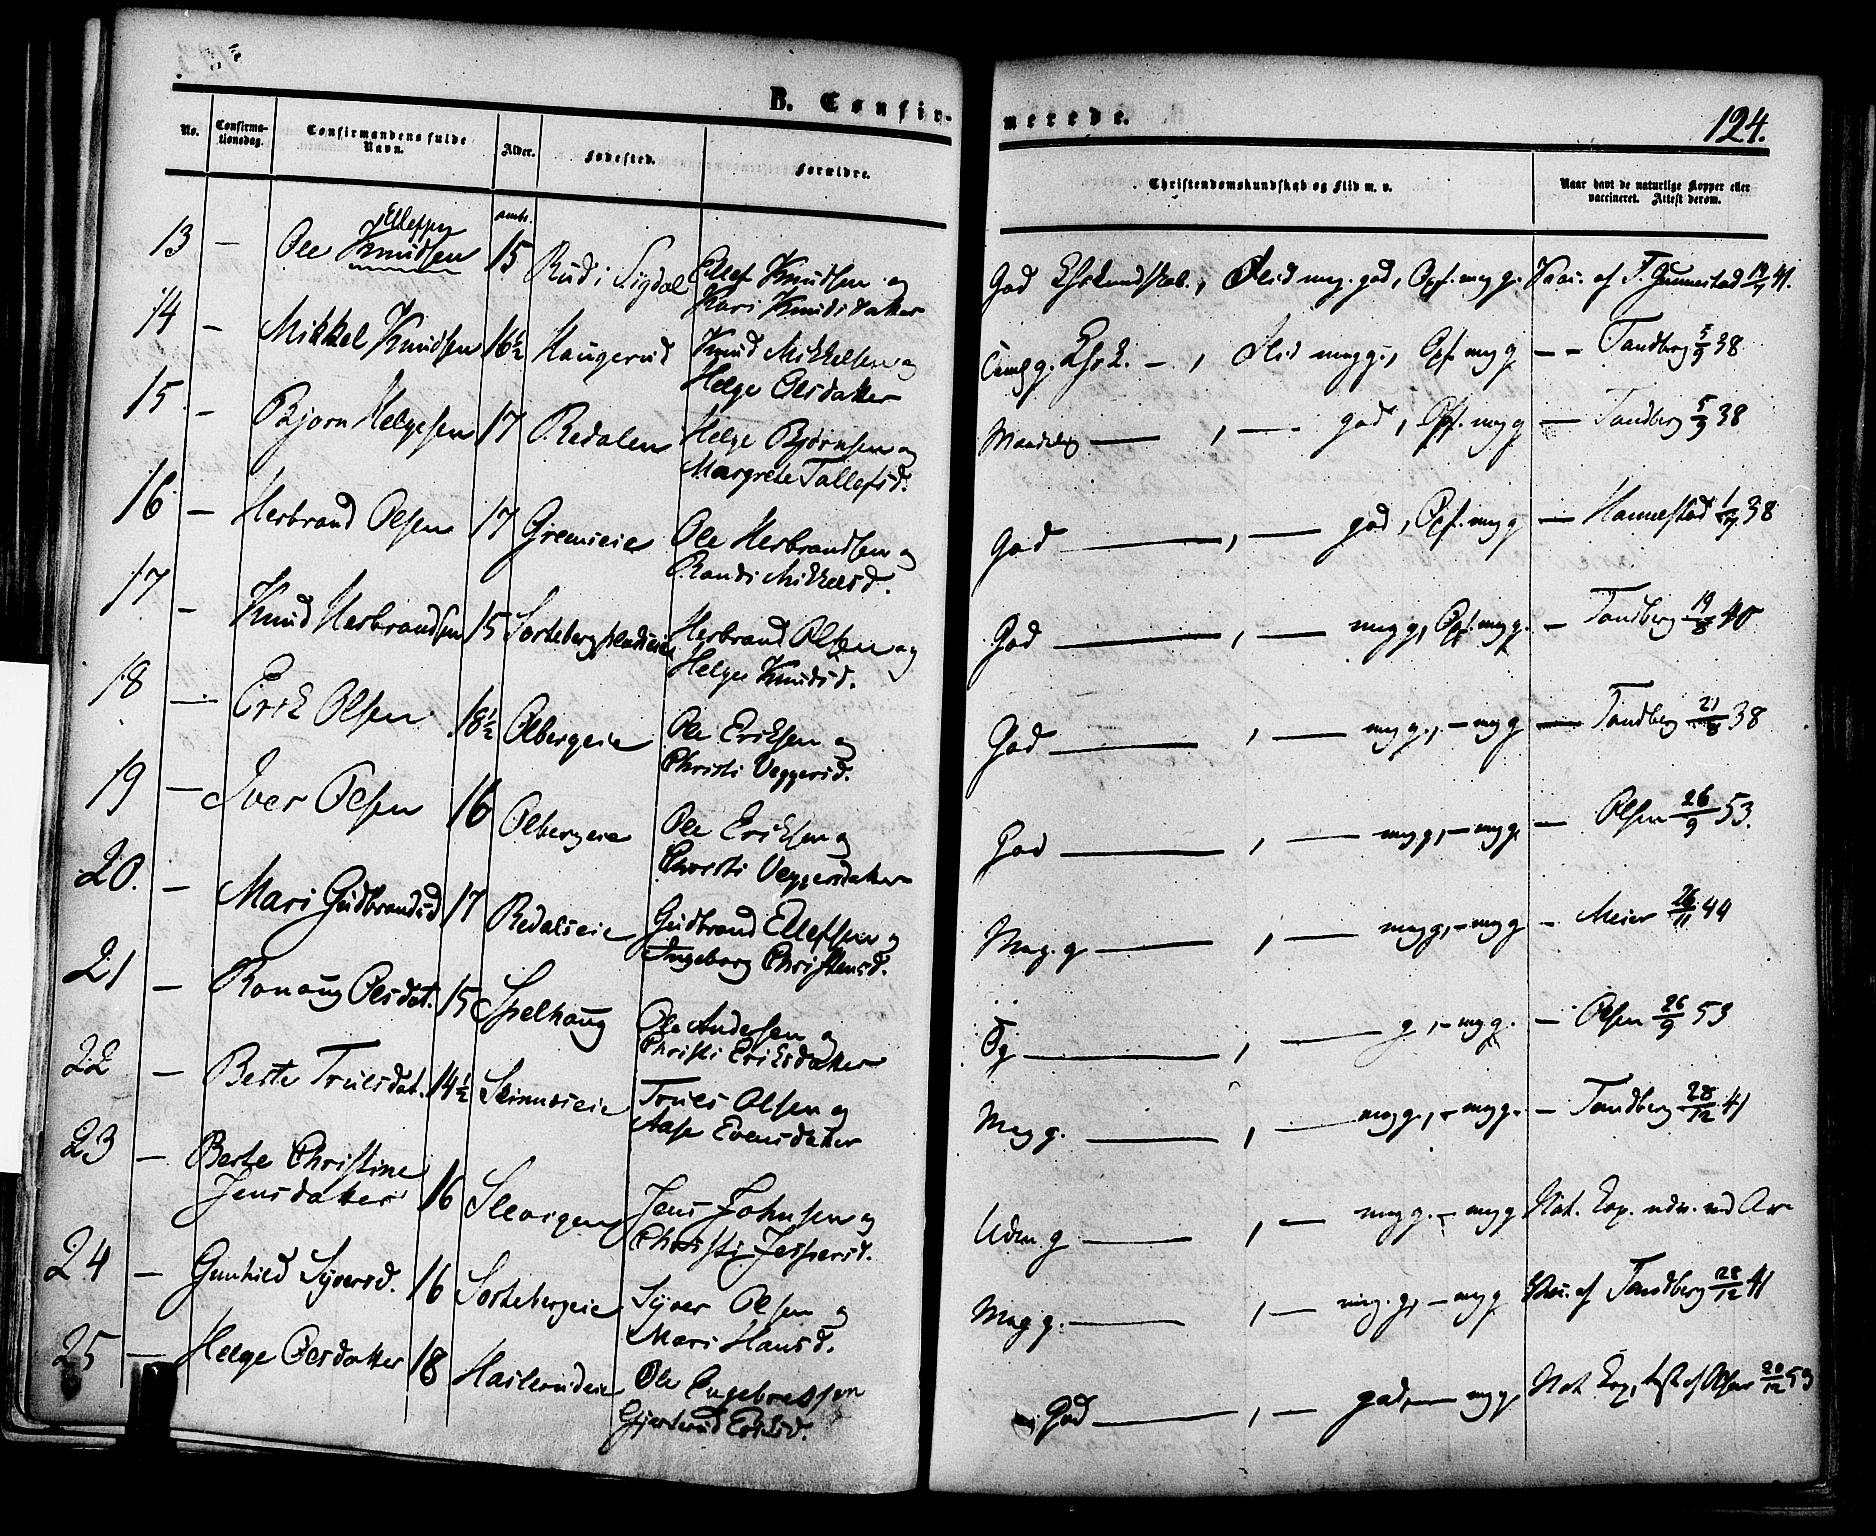 B. Confirmerede.
124.
No. Confirmationsdag. Confirmandens fulde Navn. Alder. Fødested. Forældre. Christendomskundskab og Flid m. v. Naar havt de naturlige Kopper eller vaccineret. Attest derom.
13 — Ole Knudsen Ellefsen 15 Rud i Sigdal Ellef Knudsen og God Chrkundskab., Flid meg. god, Opf. meg g. Vac. af T. Gunnestad 41.
Kari Knudsdatter
14 — Mikkel Knudsen 16½ Haugerud Knud Mikkelsen og Temlg. Chrk. — , Flid meg g., Opf. meg g — — Tandberg 5/9 38
Helge Olsdatter
15. — Bjørn Helgesen 17 Redalen Helge Bjørnsen og Maadelig — , — god, Opf. meg g — Tandberg 5/9 38
Margrethe Tollefsd.
16 — Herbrand Olsen 17 Grenseie Ole Herbrandsen og God — , — god, Opf. meg g — Hannestad 38
Randi Mikkelsd.
17 — Knud Herbrandsen 15 Sorteberg Herbrand Olsen og God — , — meg g, Opf. meg g. — Tandberg 19/8 40
Helge Knudsd.
18 — Erik Olsen 18½ Olbergeie Ole Eriksen og God — , — meg g., — meg g — Tandberg 21/8 38
Christi Veggersd.
19 — Iver Olsen 16 Olbergeie Ole Eriksen og God — , — meg g, — meg g. — Olsen 26/9 53.
Christi Veggersdatter
20. — Mari Gudbrandsd 17 Redalseie Gudbrand Ellefsen og Meg. g — , — meg g, — meg g — Meier 26/11 44
Ingeborg Christensd.
21 — Ronaug Olsdat. 15 Spelhaug Ole Andersen og Tg — , — g, — meg g. — Olsen 26/9 53
Christi Eriksdatter
22 — Berte Truelsdat. 14½ Skinneseie Truels Olsen og Meg g. — , — meg g., — meg g. — Tandberg 28/12 41
Aase Evensdatter
23 — Berte Christine 16 Jens Johnsen og Udm. g — , — meg g. — meg g Nat. Kop. udv. ved Ar
Jensdatter Christi Jespersd.
24 — Gunhild Syversd. 16 Sortebergeie Syver Olsen og Meg g. — , — meg. g, — meg g Vac. af Tandberg 28/12 41
Mari Hansd.
25 — Helge Olsdatter 18 Ole Engebretsen God — , — god, — meg g Nat Kop, Att. af Olsen 20/12 53
Gjertrud Eriksd.